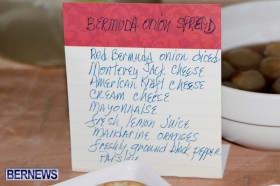 BERMUDA ONION SPREAD
Red Bermuda onion diced
Monterey Jack cheese
American Kraft cheese
Cream cheese
Mayonnaise
Fresh lemon juice
Mandarine oranges
Freshly ground black pepper
Parsley
BERNEWS